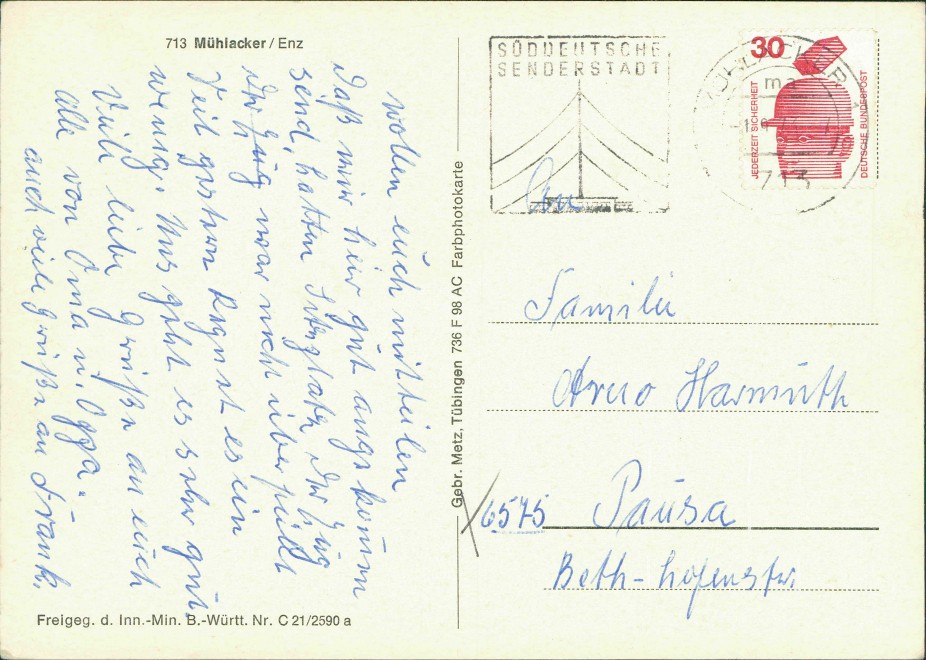 713 Mühlacker / Enz
wollen euch mitteilen
Daß wir hier gut angekommen
send, hatten Sitzplatz der Zug
der Zug war nicht überfüllt
Seit gestern Regnet es ein
wenig. Uns geht es sehr gut.
Viele liebe Grüße an euch
alle von Oma u. Oppa.
auch viele Grüße an Frank.
Freigeg. d. Inn.-Min. B.-Württ. Nr. C 21/2590 a
Gebr. Metz, Tübingen 736 F 98 AC Farbphotokarte
SÜDDEUTSCHE
SENDERSTADT
MÜHLACKER
ma
713
30
JEDERZEIT SICHERHEIT
DEUTSCHE BUNDESPOST
An
Familie
Arno Harmuth
6575 Pausa
Beth-hofenstr.